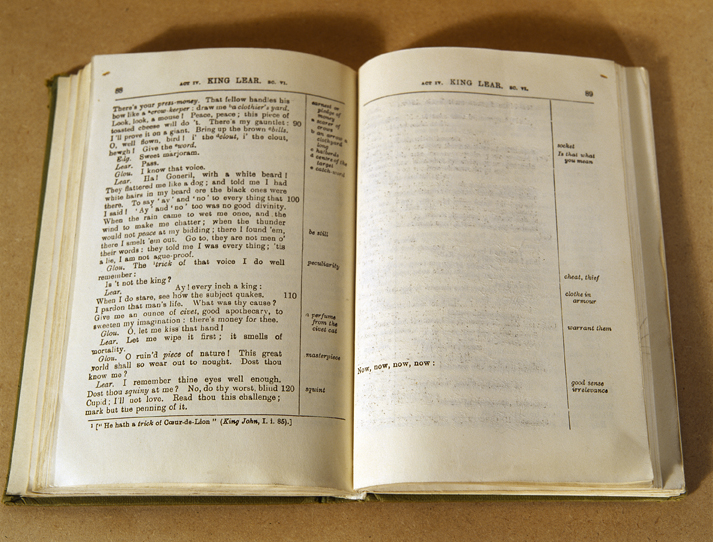 88
ACT IV. KING LEAR. SC. VI.
There's your press-money. That fellow handles his
bow like a crow-keeper: draw me a clothier's yard.
Look, look, a mouse! Peace, peace; this piece of
toasted cheese will do 't. There's my gauntlet: 90
I'll prove it on a giant. Bring up the brown bills.
O, well flown, bird! i' the clout, i' the clout,
hewgh! Give the word.
Edg. Sweet marjoram.
Lear. Pass.
Glou. I know that voice.
Lear. Ha! Goneril, with a white beard!
They flattered me like a dog; and told me I had
white hairs in my beard ere the black ones were
there. To say 'ay' and 'no' to every thing that 100
I said! 'Ay' and 'no' too was no good divinity.
When the rain came to wet me once, and the
wind to make me chatter; when the thunder
would not peace at my bidding; there I found 'em,
there I smelt 'em out. Go to, they are not men o'
their words: they told me I was every thing; 'tis
a lie, I am not ague-proof.
Glou. The ¹trick of that voice I do well
remember:
Is 't not the king?
Lear. Ay! every inch a king:
When I do stare, see how the subject quakes. 110
I pardon that man's life. What was thy cause?
Give me an ounce of civet, good apothecary, to
sweeten my imagination: there's money for thee.
Glou. O, let me kiss that hand!
Lear. Let me wipe it first; it smells of
mortality.
Glou. O ruin'd piece of nature! This great
world shall so wear out to nought. Dost thou
know me?
Lear. I remember thine eyes well enough.
Dost thou squiny at me? No, do thy worst, blind 120
Cupid; I'll not love. Read thou this challenge;
mark but the penning of it.
¹ ["He hath a trick of Cœur-de-Lion" (King John, I. i. 85).]
earnest or
pledge of
money
a scarer of
crows
b an arrow a
clothyard
long
c halberds
d centre of the
target
e catch word
be still
peculiarity
a perfume
from the
civet cat
masterpiece
squint
ACT IV. KING LEAR. SC. VI.
89
Now, now, now, now:
socket
Is that what
you mean
cheat, thief
clothe in
armour
warrant them
good sense
irrelevance